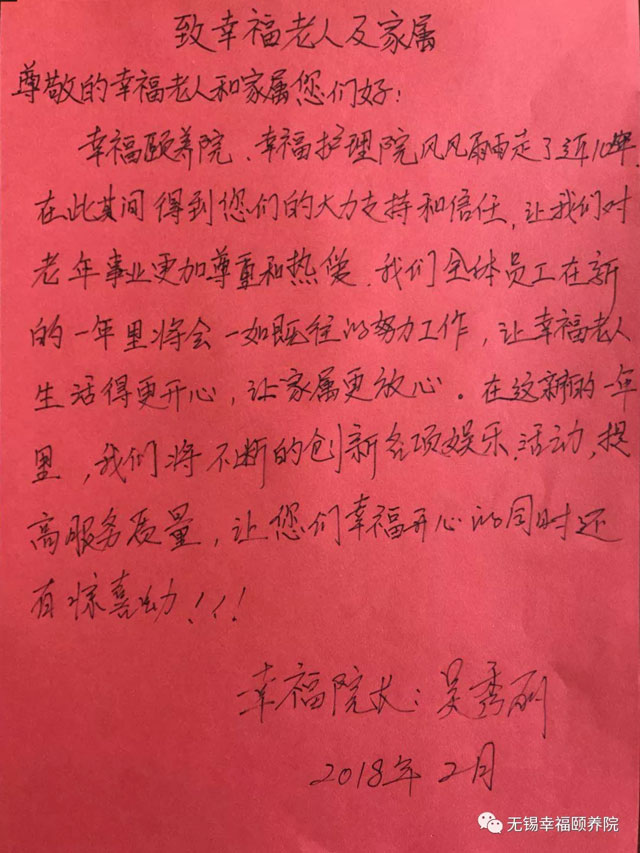 致幸福老人及家属
尊敬的幸福老人和家属您们好：
幸福颐养院、幸福护理院风风雨雨走了近10年.
在此其间得到您们的大力支持和信任，让我们对
老年事业更加尊重和热爱.我们全体员工在新
的一年里将会一如既往的努力工作，让幸福老人
生活得更开心，让家属更放心。在这新的一年
里，我们将不断的创新各项娱乐.活动，提
高服务质量，让您们幸福开心的同时还
有惊喜!!!
幸福院长：吴秀
2018年2月
无锡幸福颐养院